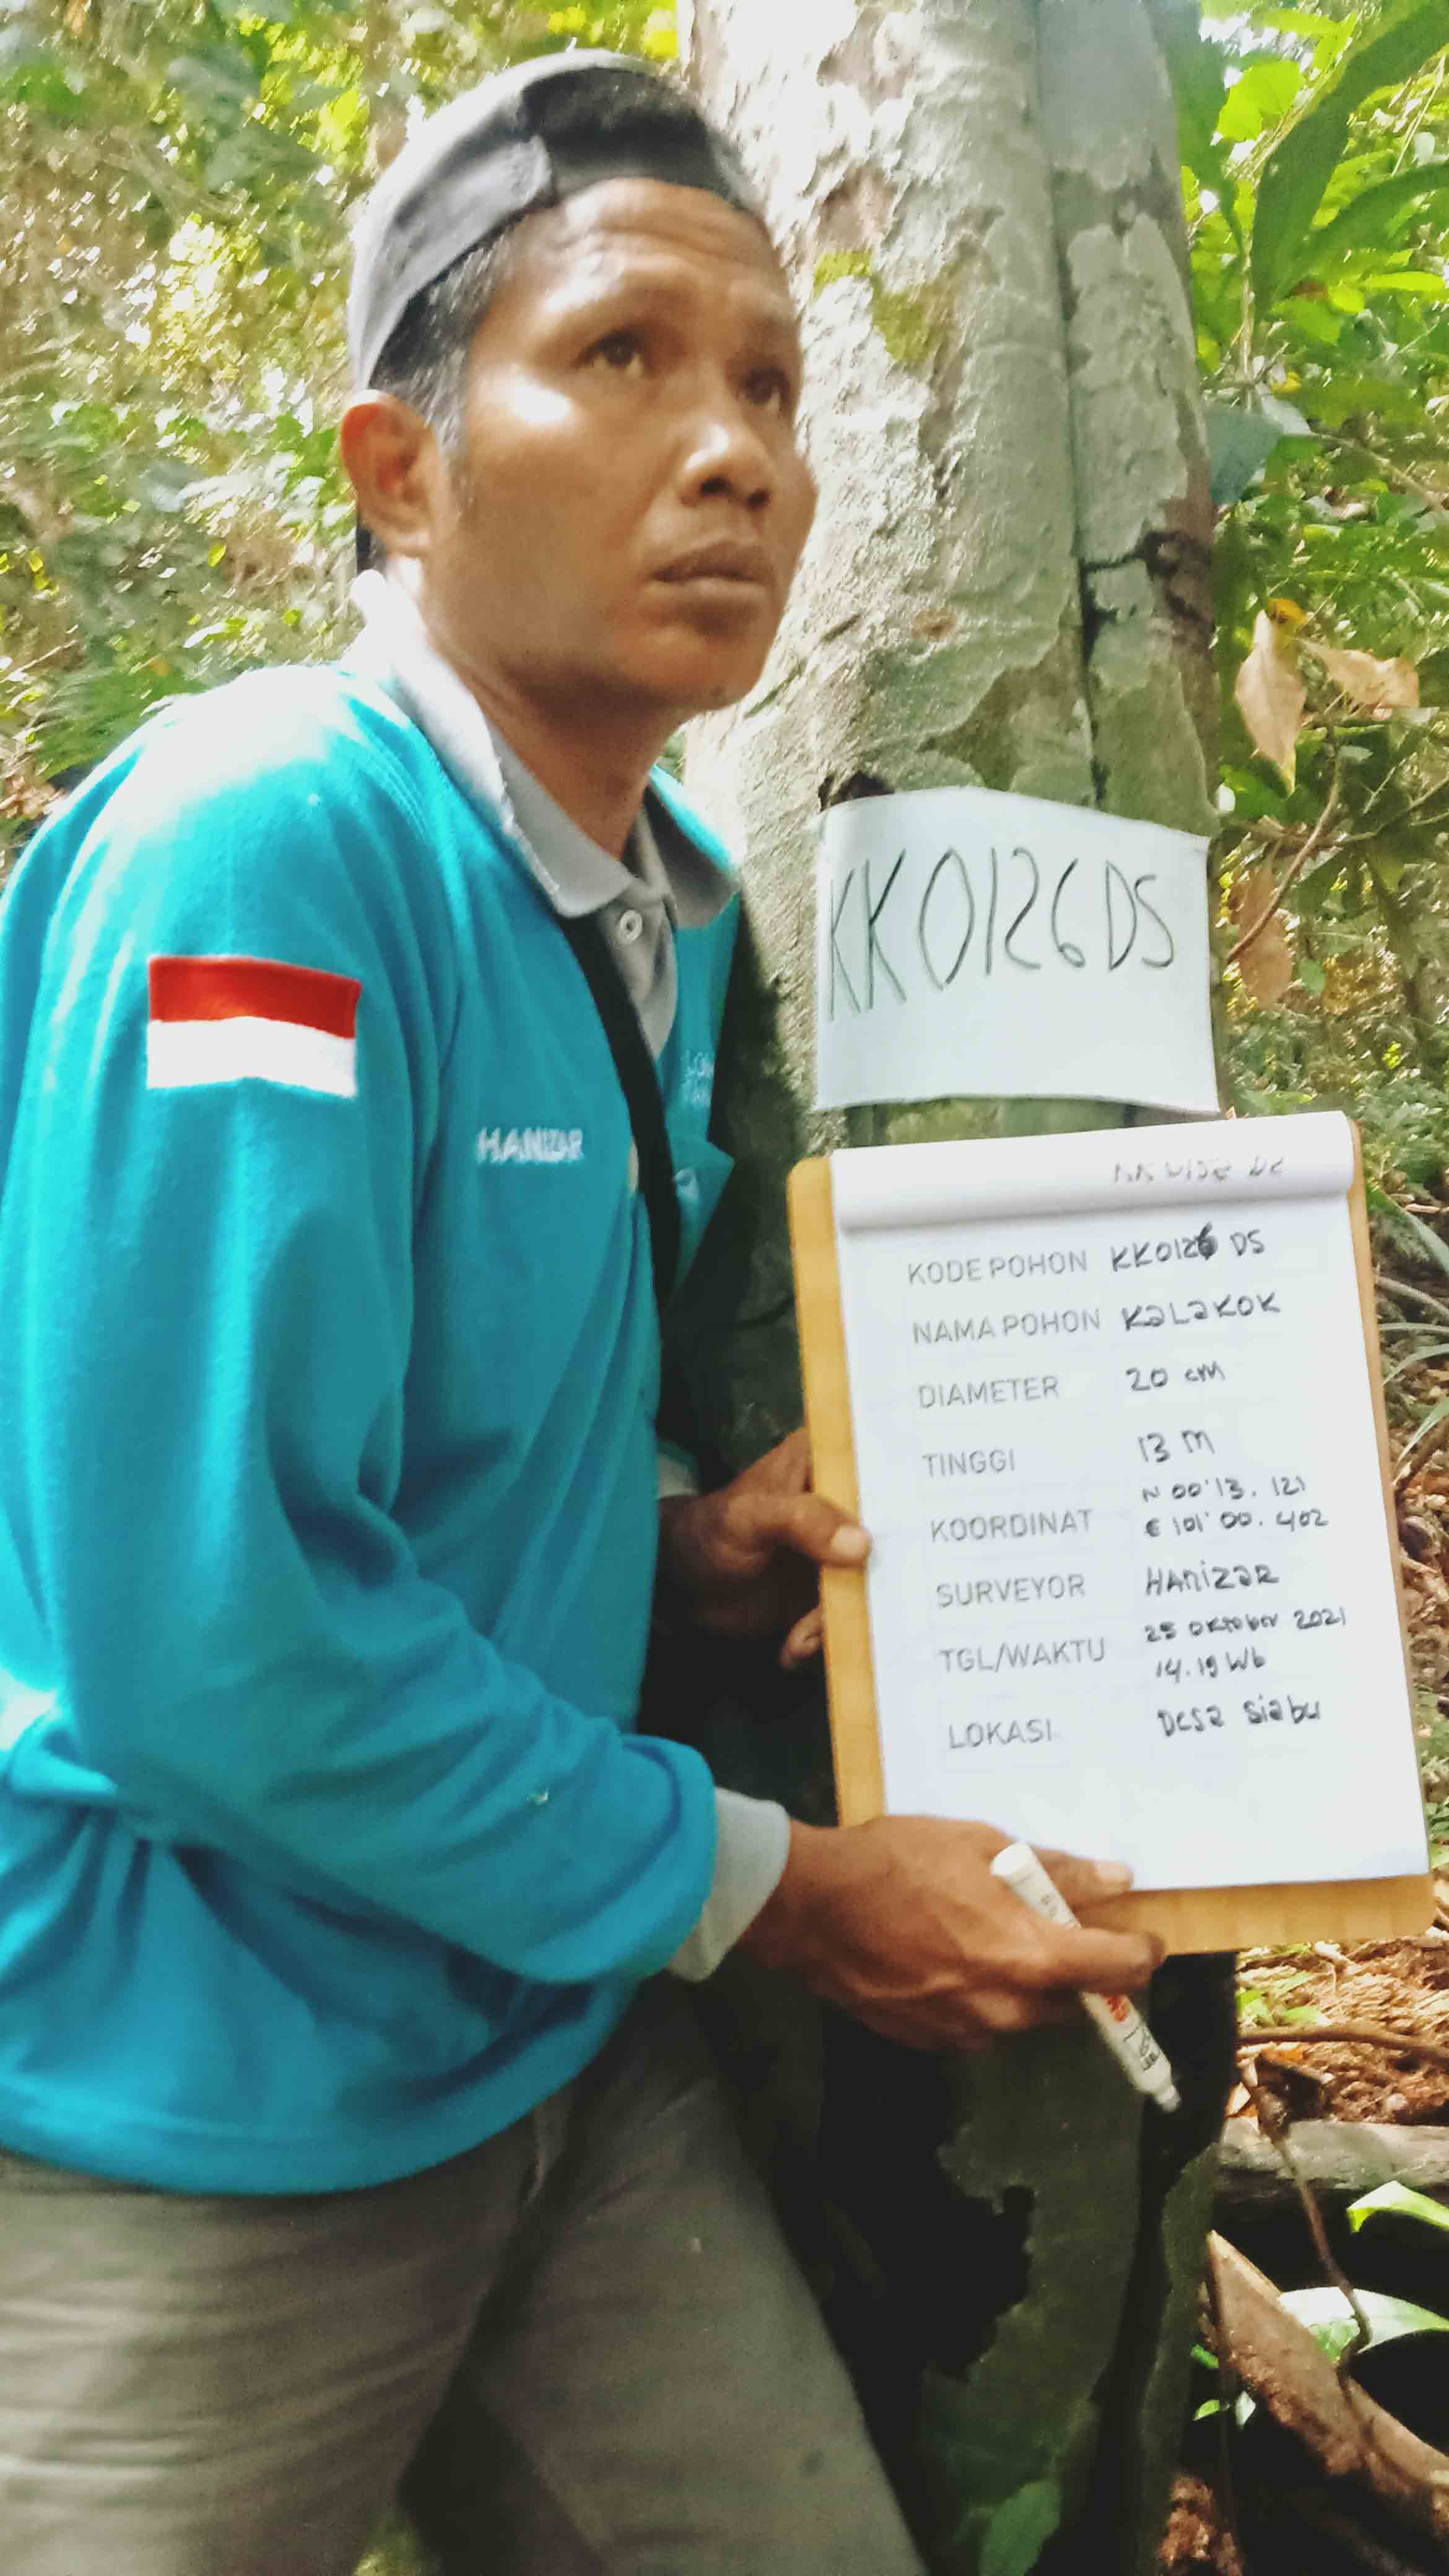 KK0126DS
HANIZAR
KODE POHON KK0126 DS
NAMA POHON KALAKOK
DIAMETER 20 cm
TINGGI 13 M
KOORDINAT N 00'13. 121
E 101'00. 402
SURVEYOR HANIZAR
TGL/WAKTU 25 oktober 2021
14.19 Wb
LOKASI Desa Siabu